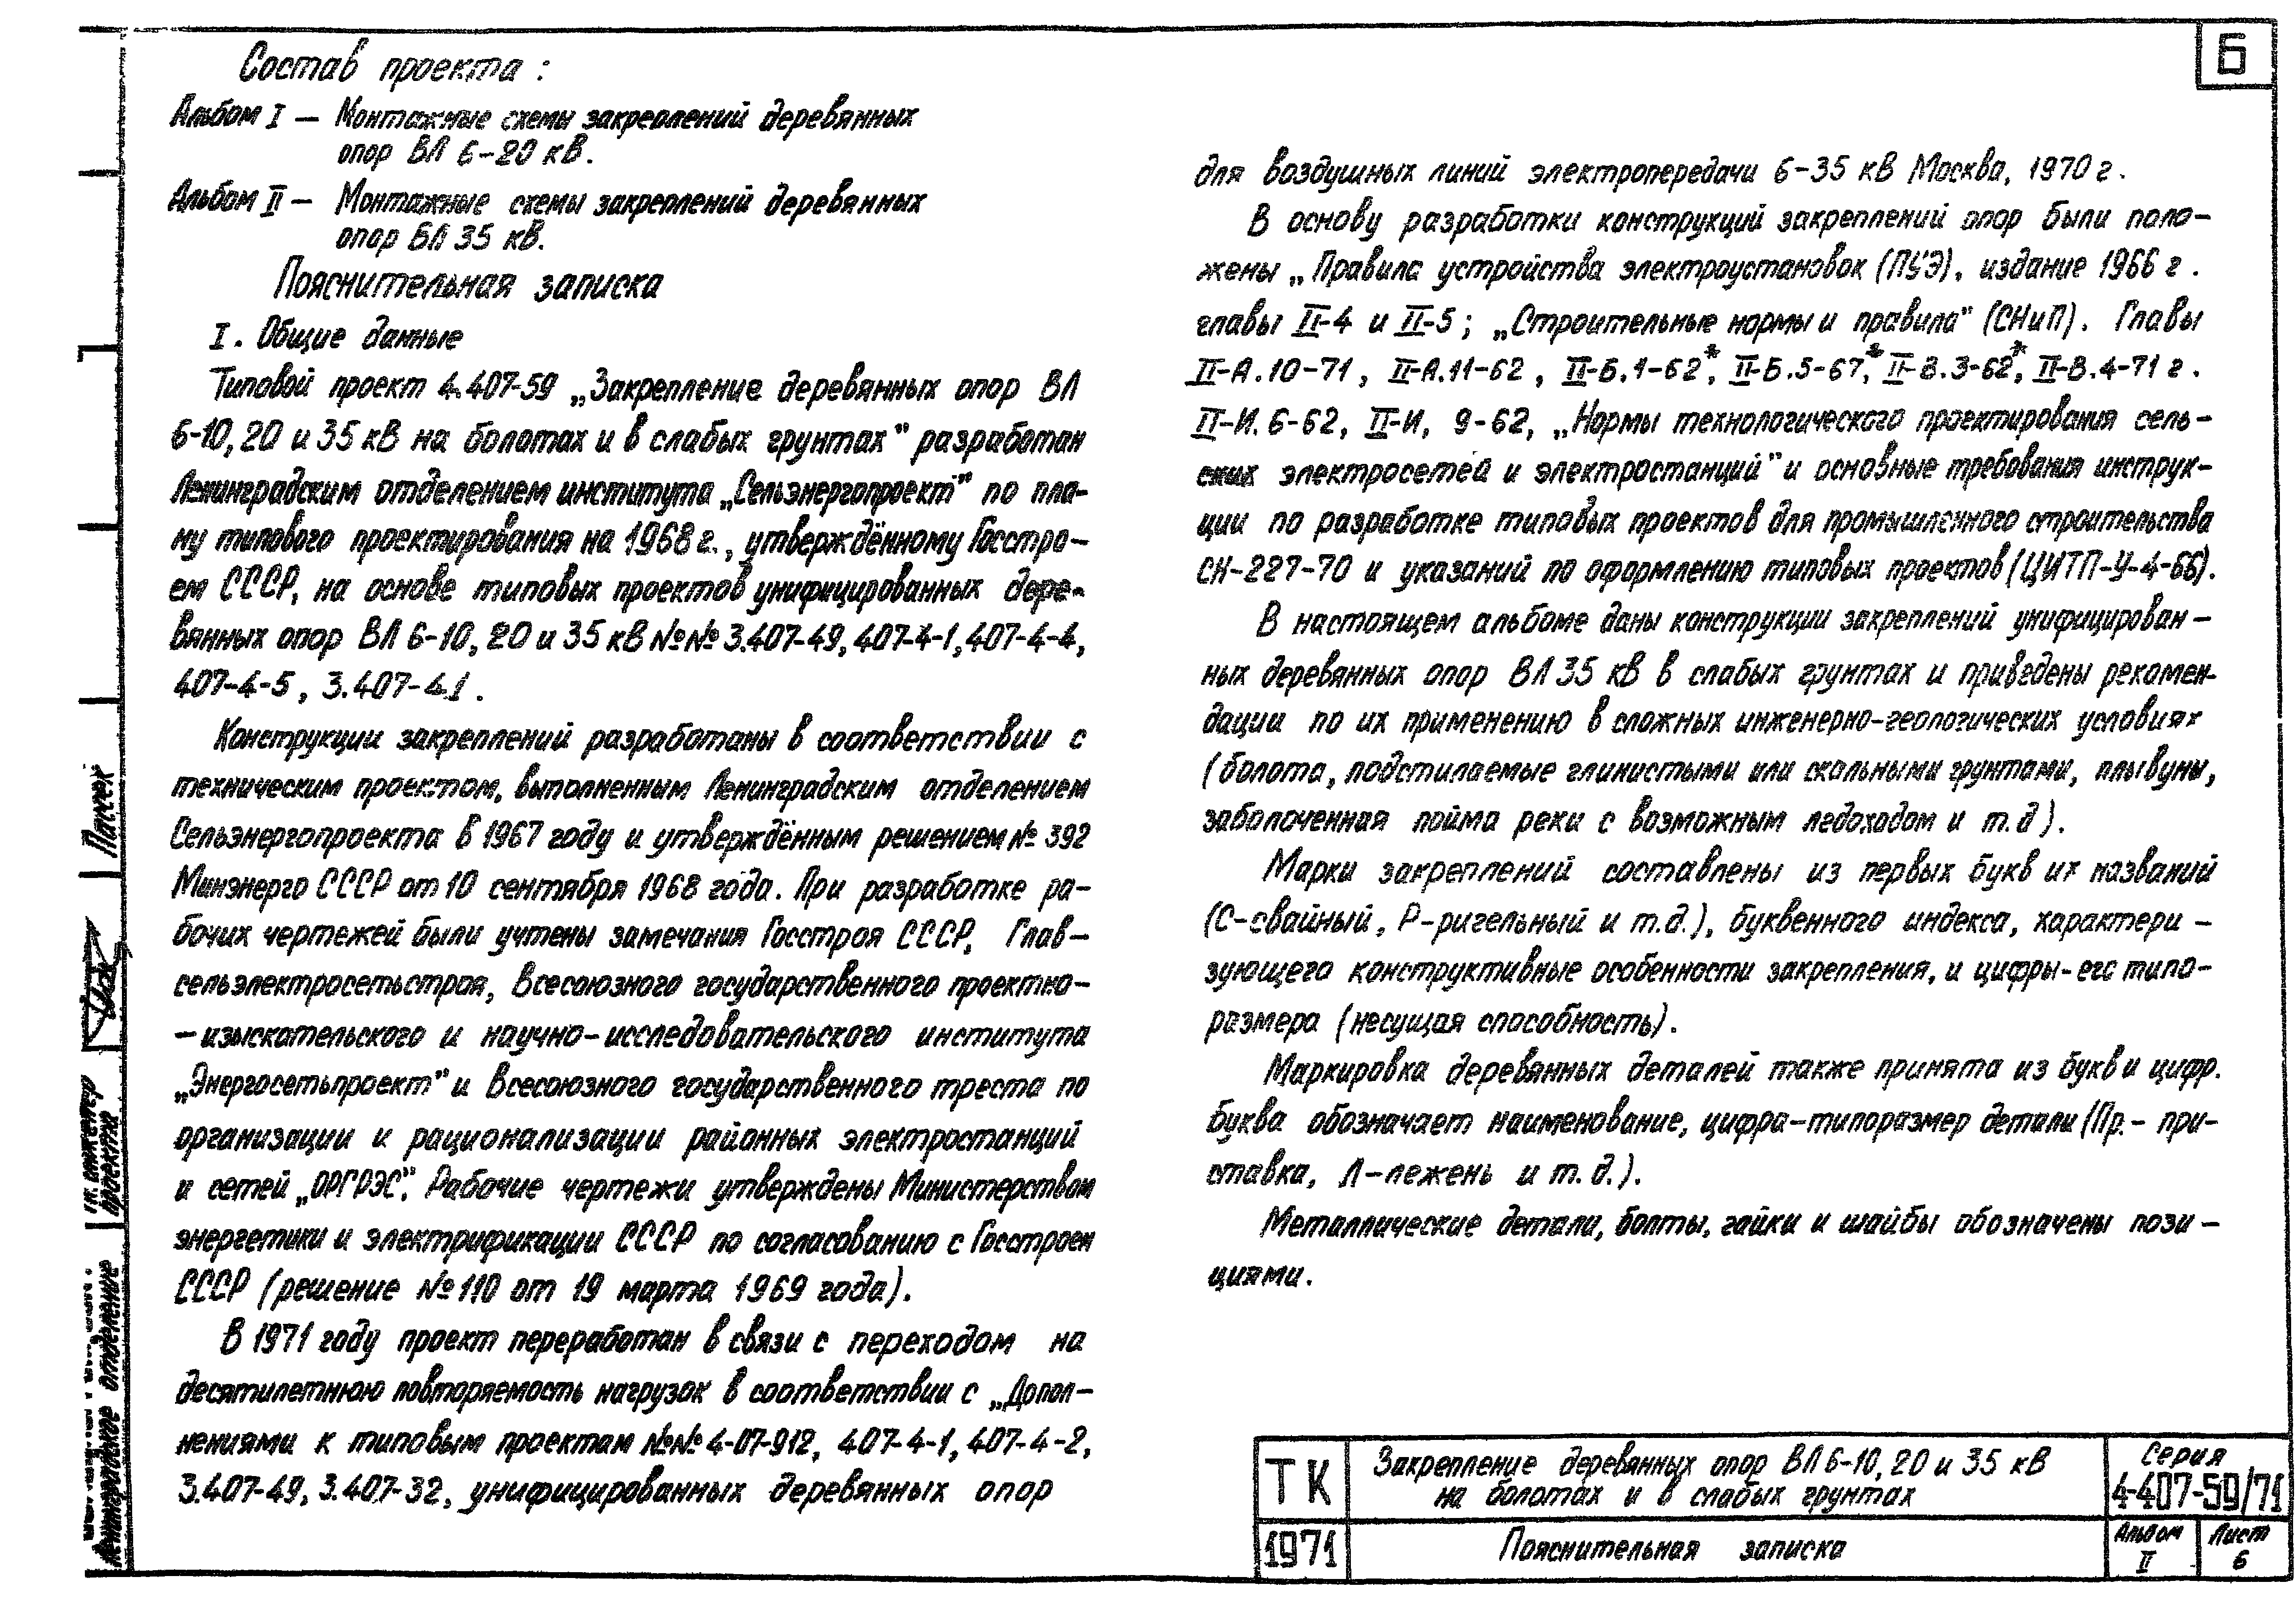 6
Состав проекта :
Альбом I — Монтажные схемы закреплений деревянных
опор ВЛ 6-20 кВ.
Альбом II — Монтажные схемы закреплений деревянных
опор ВЛ 35 кВ.
Пояснительная записка
I. Общие данные
Типовой проект 4.407-59 „Закрепление деревянных опор ВЛ
6-10, 20 и 35 кВ на болотах и в слабых грунтах" разработан
Ленинградским отделением института „Сельэнергопроект" по пла-
ну типового проектирования на 1968 г., утверждённому Госстро-
ем СССР, на основе типовых проектов унифицированных дере-
вянных опор ВЛ 6-10, 20 и 35 кВ №№ 3.407-49, 407-4-1, 407-4-4,
407-4-5, 3.407-41.
Конструкции закреплений разработаны в соответствии с
техническим проектом, выполненным Ленинградским отделением
Сельэнергопроекта в 1967 году и утверждённым решением № 392
Минэнерго СССР от 10 сентября 1968 года. При разработке ра-
бочих чертежей были учтены замечания Госстроя СССР, Глав-
сельэлектросетьстроя, Всесоюзного государственного проектно-
-изыскательского и научно-исследовательского института
„Энергосетьпроект" и Всесоюзного государственного треста по
организации и рационализации районных электростанций
и сетей „ОРГРЭС". Рабочие чертежи утверждены Министерством
энергетики и электрификации СССР по согласованию с Госстроем
СССР (решение № 110 от 19 марта 1969 года).
В 1971 году проект переработан в связи с переходом на
десятилетнюю повторяемость нагрузок в соответствии с „Допол-
нениями к типовым проектам №№ 4-07-912, 407-4-1, 407-4-2,
3.407-49, 3.407-32, унифицированных деревянных опор
для воздушных линий электропередачи 6-35 кВ Москва, 1970 г.
В основу разработки конструкций закреплений опор были поло-
жены „Правила устройства электроустановок (ПУЭ), издание 1966 г.
главы II-4 и II-5; „Строительные нормы и правила" (СНиП). Главы
II-А.10-71, II-А.11-62, II-Б.1-62*, II-Б.5-67*, II-В.3-62*, II-В.4-71 г.
II-И.6-62, II-И, 9-62, „Нормы технологического проектирования сель-
ских электросетей и электростанций" и основные требования инструк-
ции по разработке типовых проектов для промышленного строительства
СН-227-70 и указаний по оформлению типовых проектов (ЦИТП-У-4-66).
В настоящем альбоме даны конструкции закреплений унифицирован-
ных деревянных опор ВЛ 35 кВ в слабых грунтах и приведены рекомен-
дации по их применению в сложных инженерно-геологических условиях
(болота, подстилаемые глинистыми или скальными грунтами, плывуны,
заболоченная пойма реки с возможным ледоходом и т.д).
Марки закреплений составлены из первых букв их названий
(С-свайный, Р-ригельный и т.д.), буквенного индекса, характери-
зующего конструктивные особенности закрепления, и цифры-его типо-
размера (несущая способность).
Маркировка деревянных деталей также принята из букв и цифр.
Буква обозначает наименование, цифра-типоразмер детали (Пр.- при-
ставка, Л-лежень и т.д.).
Металлические детали, болты, гайки и шайбы обозначены пози-
циями.
Ленинградское отделение
гл. инженер
проекта
ТК
1971
Закрепление деревянных опор ВЛ 6-10, 20 и 35 кВ
на болотах и в слабых грунтах
Пояснительная записка
Серия
4-407-59/71
Альбом
II
Лист
6